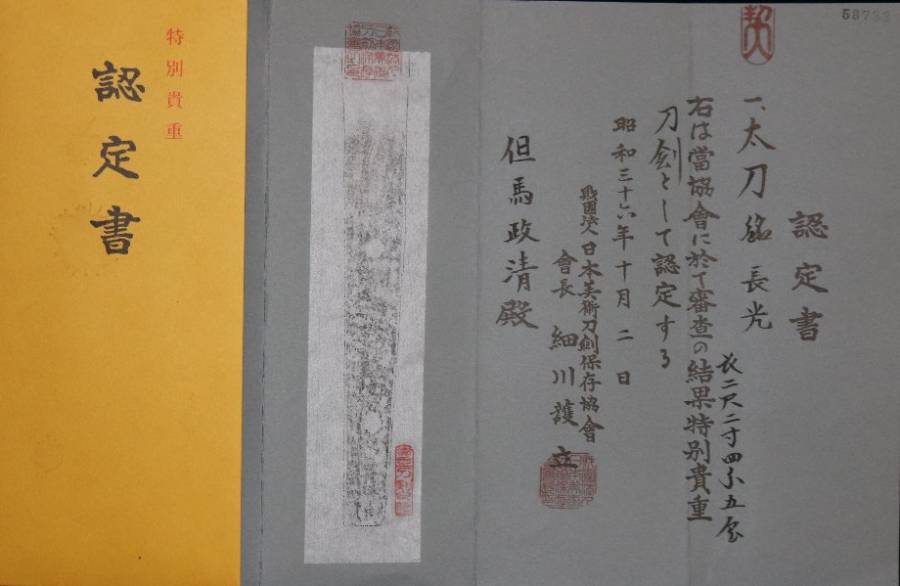 認定書
一、太刀 銘 長光
長二尺二寸四分五厘
右は當協會に於て審査の結果特別貴重
刀剣として認定する
昭和三十六年十月二日
財團法人日本美術刀劍保存協會
會長 細川護立
但馬政清殿
特別貴重
認定書